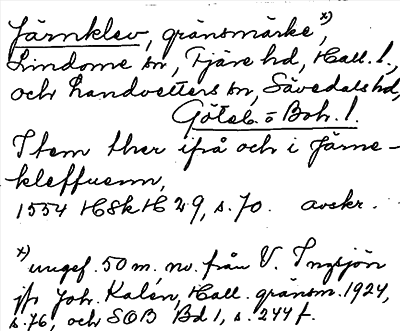 Järnklev, gränsmärke, x)
Lindome sn, Fjäre hd, Hall. l.,
och Landvetters sn, Sävedals hd,
Göteb. o Boh. l.
Item ther ifrå och i Järne-
kleffuenn,
1554 HSkH 29, s. 70. avskr.
x) ungef. 50 m. nv. från V. Ingsjön
jfr Joh. Kalén, Hall. gränsm. 1924,
s. 76, och SOB Bd 1, s. 244 f.